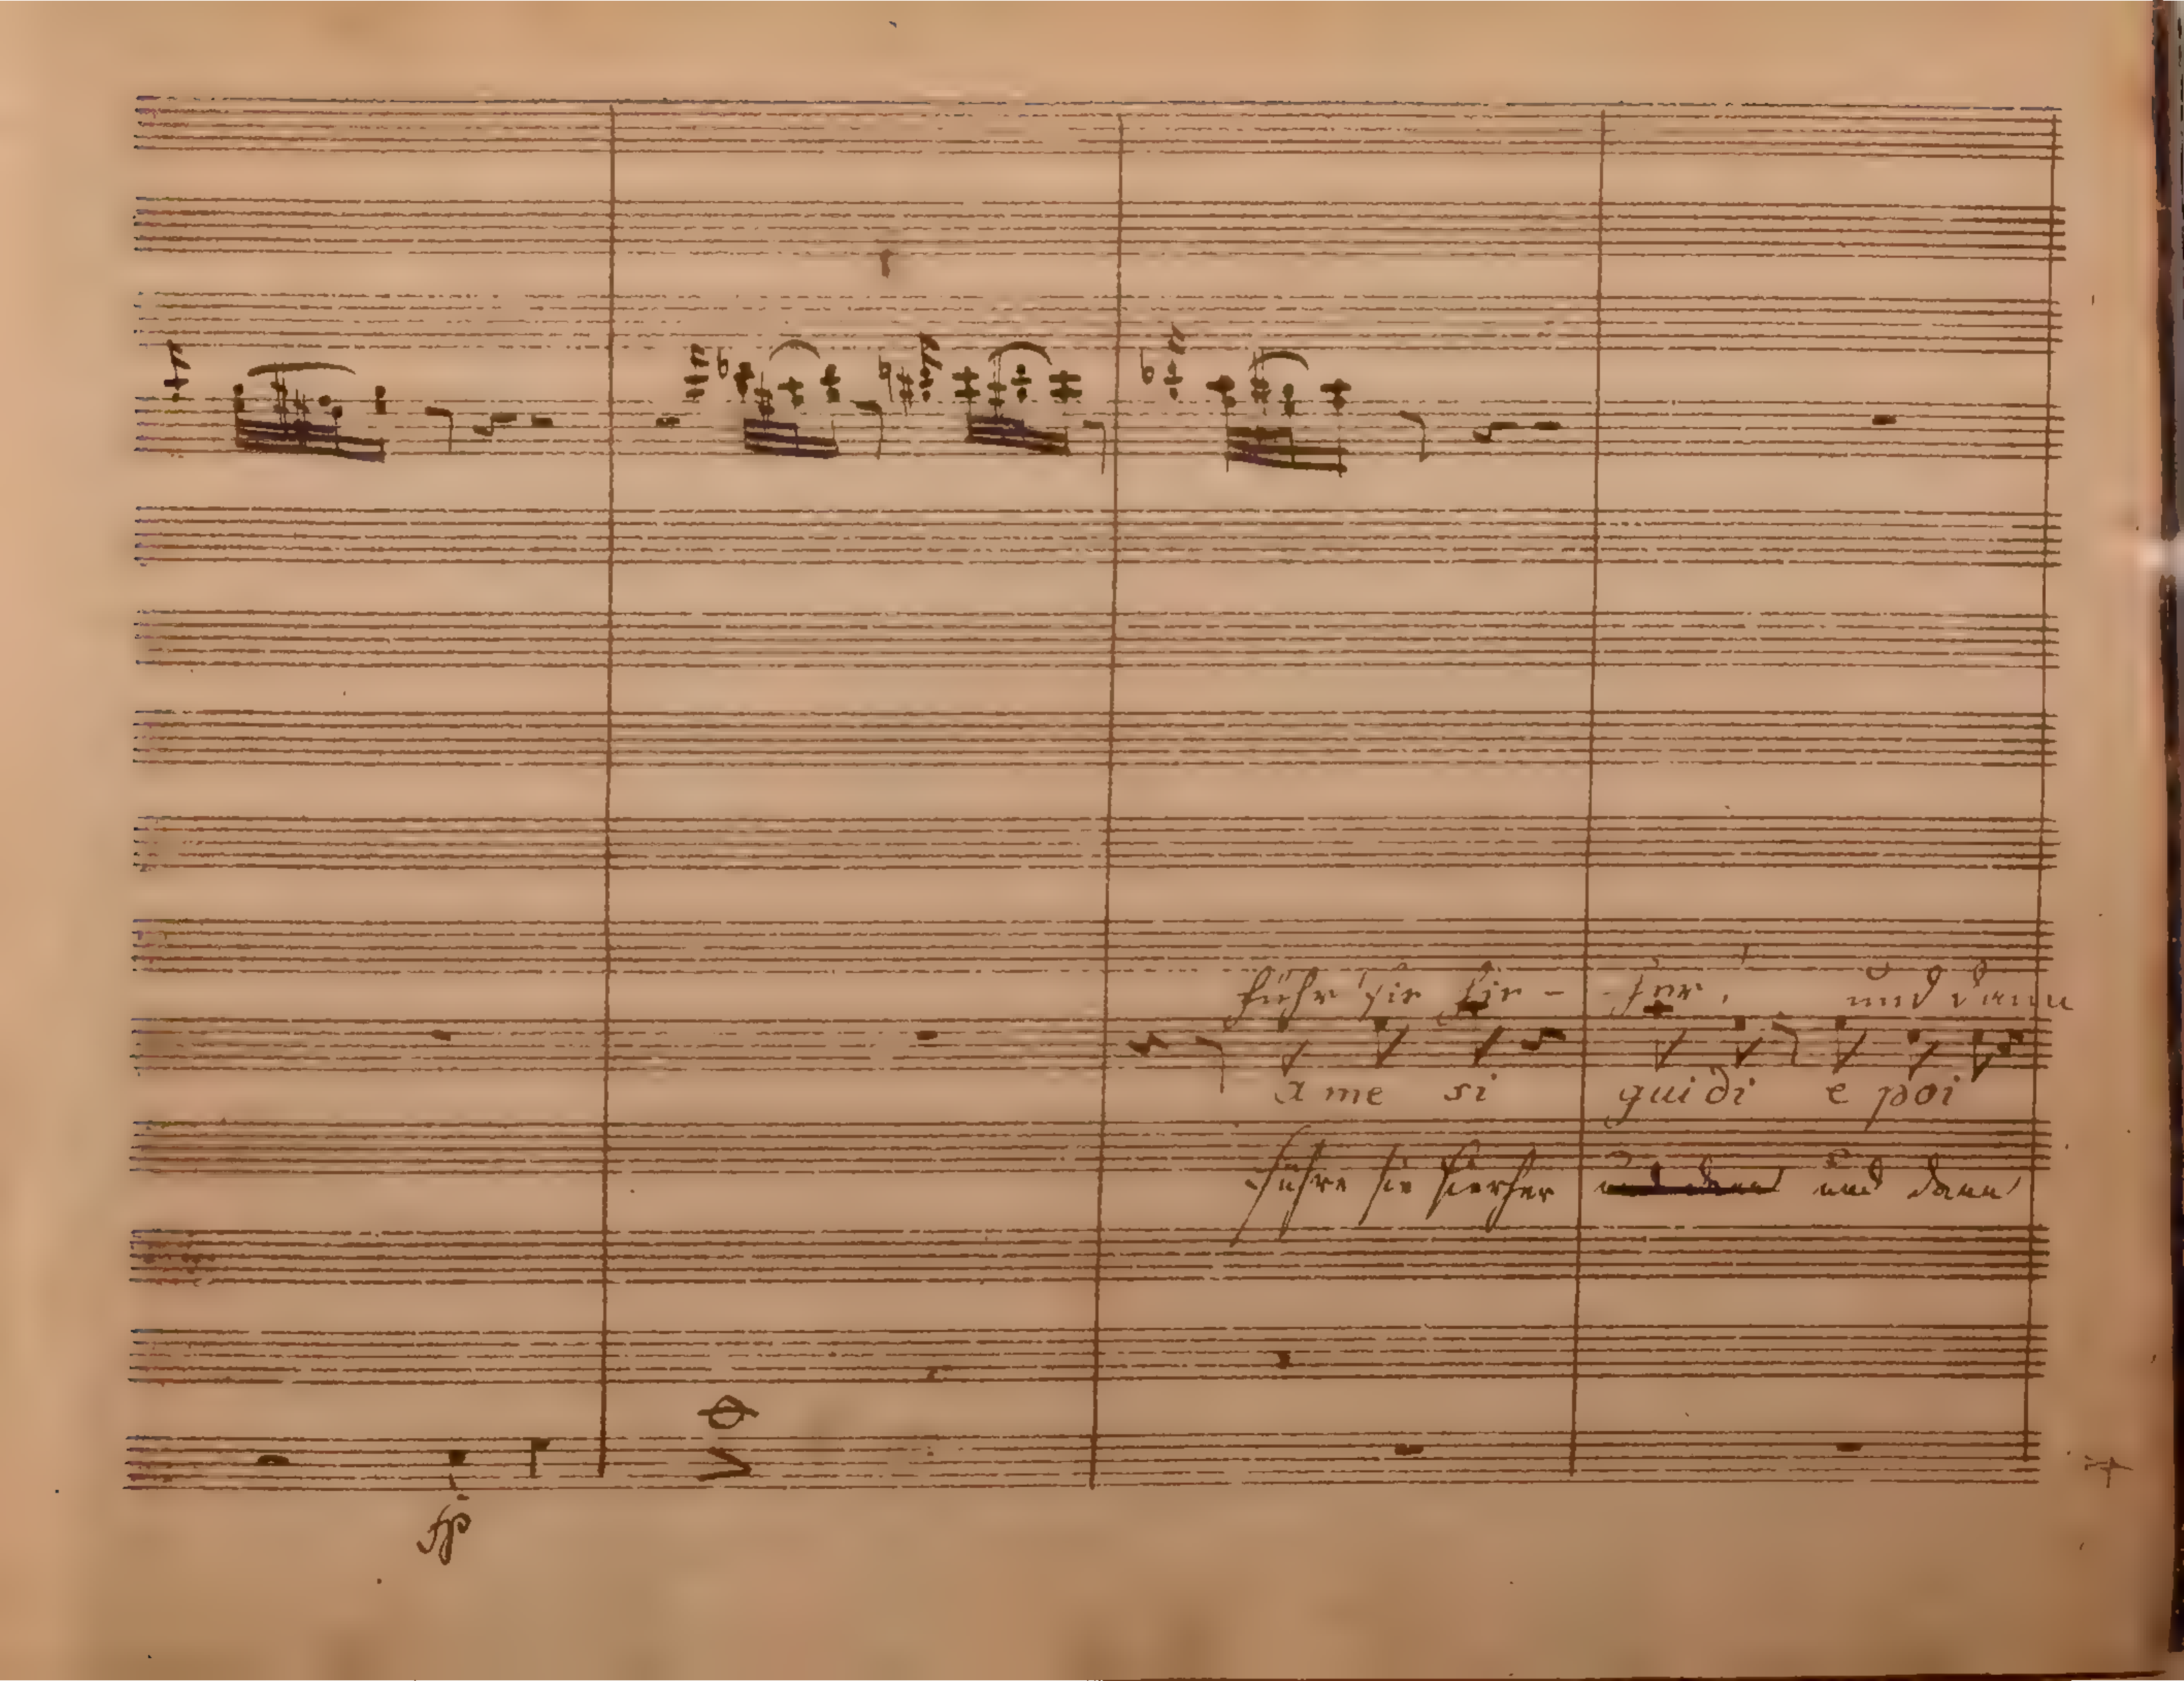 führ' sie hie - - her, und dann
a me si guidi e poi
führe sie hierher und dann und dann
fp